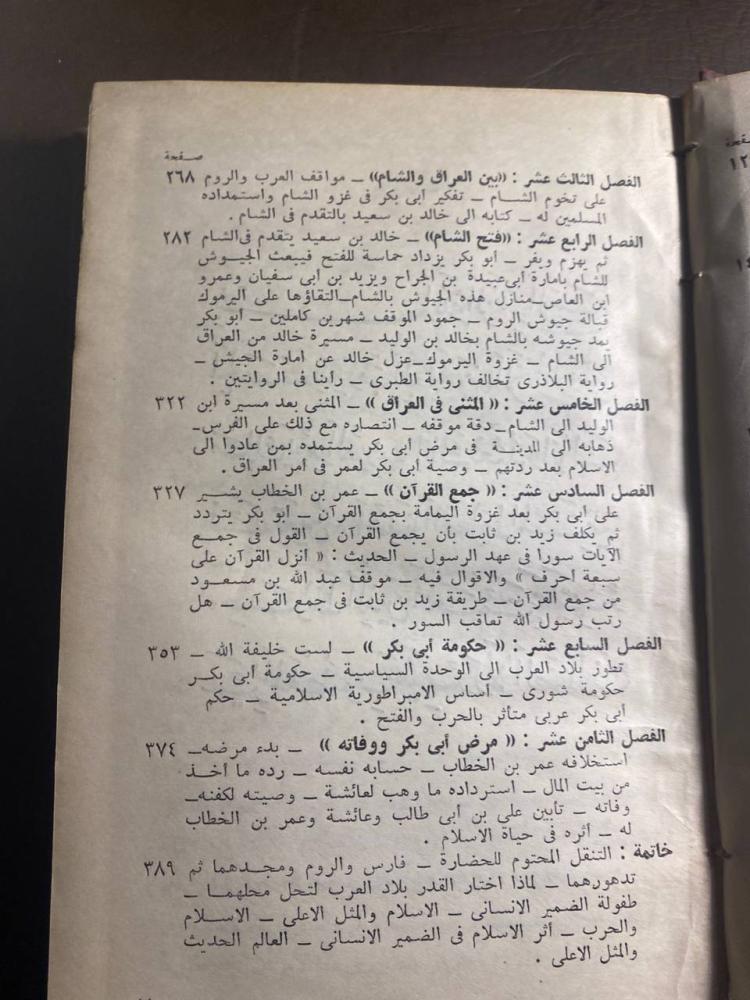 صفحة
الفصل الثالث عشر : «بين العراق والشام» ــ مواقف العرب والروم ٢٦٨
على تخوم الشام ــ تفكير أبى بكر فى غزو الشام واستمداده
المسلمين له ــ كتابه الى خالد بن سعيد بالتقدم فى الشام .
الفصل الرابع عشر : «فتح الشام» ــ خالد بن سعيد يتقدم فى الشام ٢٨٢
ثم يهزم ويفر ــ أبو بكر يزداد حماسة للفتح فيبعث الجيوش
للشام بامارة أبى عبيدة بن الجراح ويزيد بن ابى سفيان وعمرو
ابن العاص ــ منازل هذه الجيوش بالشام ــ التقاؤها على اليرموك
قبالة جيوش الروم ــ جمود الموقف شهرين كاملين ــ أبو بكر
يمد جيوشه بالشام بخالد بن الوليد ــ مسيرة خالد من العراق
الى الشام ــ غزوة اليرموك ــ عزل خالد عن امارة الجيش ــ
رواية البلاذرى تخالف رواية الطبرى ــ رأينا فى الروايتين .
الفصل الخامس عشر : «المثنى فى العراق» ــ المثنى بعد مسيرة ابن ٣٢٢
الوليد الى الشام ــ دقة موقفه ــ انتصاره مع ذلك على الفرس ــ
ذهابه الى المدينة فى مرض أبى بكر يستمده بمن عادوا الى
الاسلام بعد ردتهم ــ وصية أبى بكر لعمر فى أمر العراق .
الفصل السادس عشر : « جمع القرآن » ــ عمر بن الخطاب يشير ٣٢٧
على أبى بكر بعد غزوة اليمامة بجمع القرآن ــ أبو بكر يتردد
ثم يكلف زيد بن ثابت بأن يجمع القرآن ــ القول فى جمع
الآيات سورا فى عهد الرسول ــ الحديث : « أنزل القرآن على
سبعة أحرف » والاقوال فيه ــ موقف عبد الله بن مسعود
من جمع القرآن ــ طريقة زيد بن ثابت فى جمع القرآن ــ هل
رتب رسول الله تعاقب السور .
الفصل السابع عشر : « حكومة أبى بكر » ــ لست خليفة الله ــ ٣٥٣
تطور بلاد العرب الى الوحدة السياسية ــ حكومة أبى بكر
حكومة شورى ــ أساس الامبراطورية الاسلامية ــ حكم
أبى بكر عربى متأثر بالحرب والفتح .
الفصل الثامن عشر : « مرض أبى بكر ووفاته » ــ بدء مرضه ــ ٣٧٤
استخلافه عمر بن الخطاب ــ حسابه نفسه ــ رده ما أخذ
من بيت المال ــ استرداده ما وهب لعائشة ــ وصيته لكفنه ــ
وفاته ــ تأبين على بن أبى طالب وعائشة وعمر بن الخطاب
له ــ أثره فى حياة الاسلام .
خاتمة : التنقل المحتوم للحضارة ــ فارس والروم ومجدهما ثم ٣٨٩
تدهورهما ــ لماذا اختار القدر بلاد العرب لتحل محلهما ــ
طفولة الضمير الانسانى ــ الاسلام والمثل الاعلى ــ الاسلام
والحرب ــ أثر الاسلام فى الضمير الانسانى ــ العالم الحديث
والمثل الاعلى .